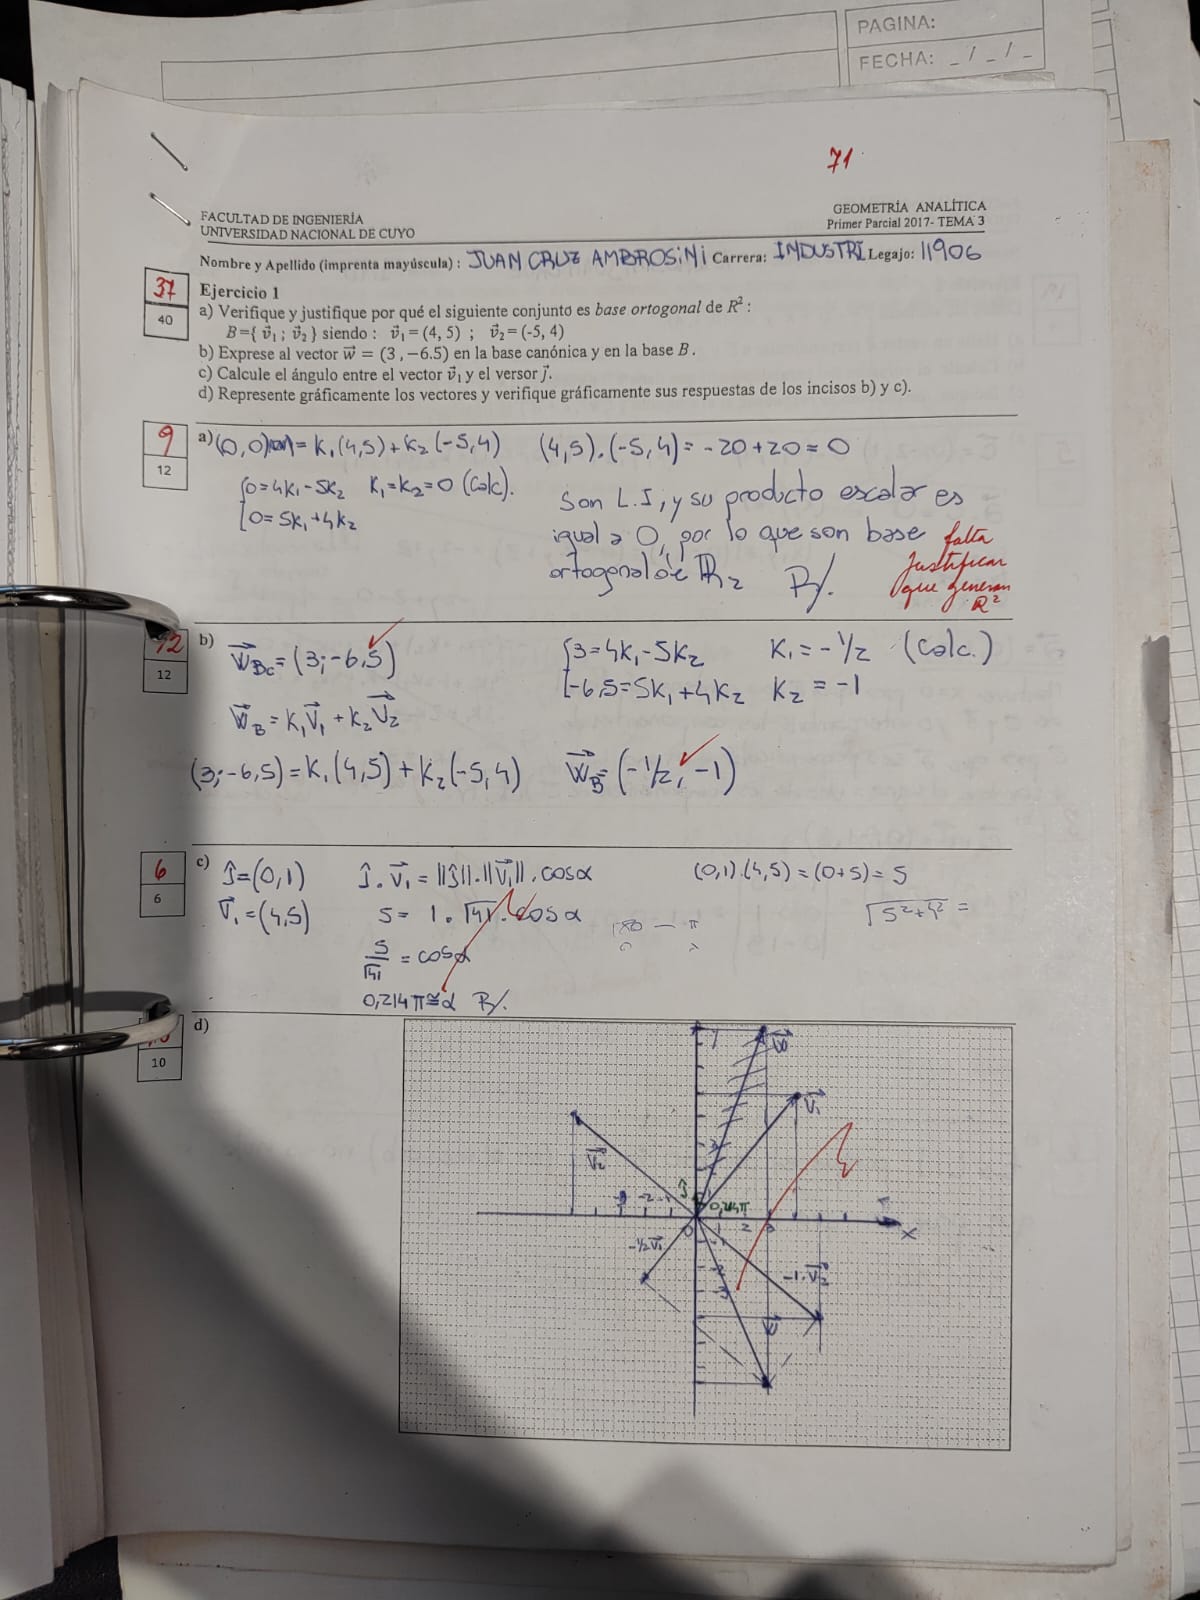 PAGINA:
FECHA: _ / _ / _
71
FACULTAD DE INGENIERÍA
UNIVERSIDAD NACIONAL DE CUYO
GEOMETRÍA ANALÍTICA
Primer Parcial 2017- TEMA 3
Nombre y Apellido (imprenta mayúscula) : JUAN CRUZ AMBROSiNi Carrera: INDUSTRI Legajo: 11906
37
40
Ejercicio 1
a) Verifique y justifique por qué el siguiente conjunto es base ortogonal de R² :
B={ v⃗₁ ; v⃗₂ } siendo : v⃗₁ = (4, 5) ; v⃗₂ = (-5, 4)
b) Exprese al vector w⃗ = (3 , −6.5) en la base canónica y en la base B .
c) Calcule el ángulo entre el vector v⃗₁ y el versor j⃗.
d) Represente gráficamente los vectores y verifique gráficamente sus respuestas de los incisos b) y c).
9
12
a) (0,0) = K₁(4,5) + K₂(-5,4) (4,5).(-5,4) = -20+20 = 0
0=4K₁-5K₂ K₁=K₂=0 (Calc).
0=5K₁+4K₂
Son L.I, y su producto escalar es
igual a 0, por lo que son base
ortogonal de R₂ R/.
falta
Justificar
que generan
R²
12
12
b) W⃗Bc = (3;-6,5)
3=4K₁-5K₂ K₁=-1/2 (Calc.)
-6,5=5K₁+4K₂ K₂=-1
W⃗B = K₁V⃗₁ + K₂V⃗₂
(3;-6,5) = K₁(4,5) + K₂(-5,4) W⃗B = (-1/2, -1)
6
6
c) Ĵ=(0,1) Ĵ.V⃗₁ = ||Ĵ||.||V⃗₁||.cosα (0,1).(4,5) = (0+5) = 5
V⃗₁=(4,5) 5 = 1.√41.cosα √5²+4² =
180 — π
5/√41 = cosα
0,214π≅α R/.
d)
10
y
V⃗₁
V⃗₂
Ĵ
0,214π
-2
0
2
3
x
-1/2V⃗₁
-1.V⃗₂